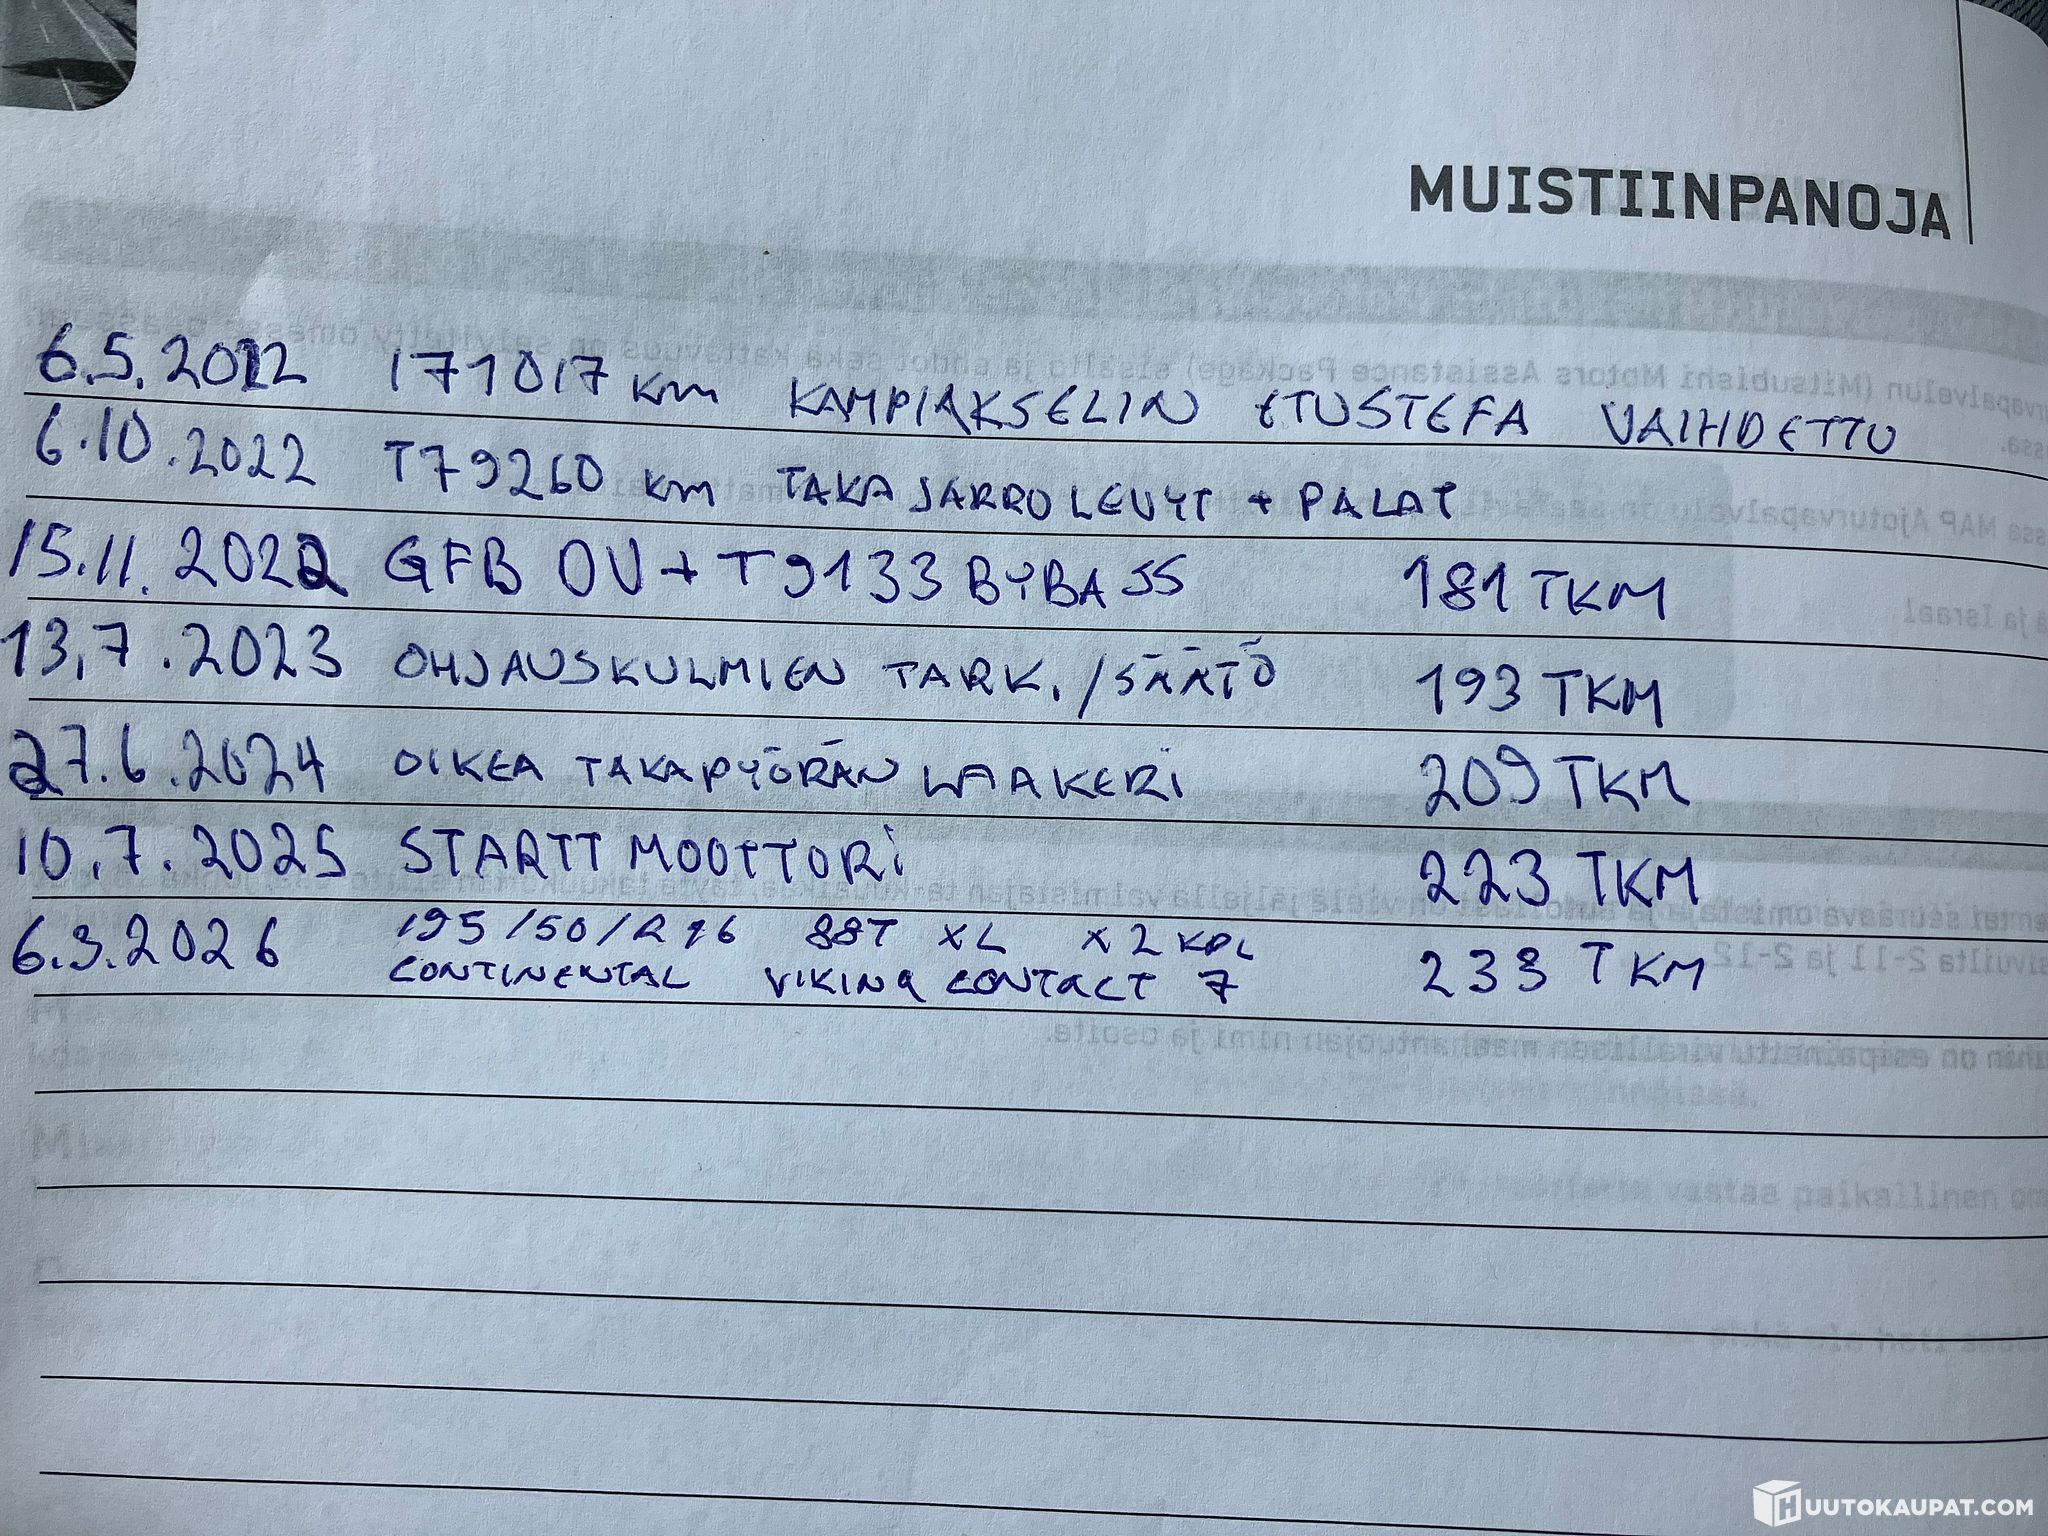 MUISTIINPANOJA
6.5.2022 171017 km KAMPIAKSELIN ETUSTEFA VAIHDETTU
6.10.2022 179260 km TAKAJARRULEVYT + PALAT
15.11.2022 GFB DV+ T9133 BYBASS 181 TKM
13.7.2023 OHJAUSKULMIEN TARK. / SÄÄTÖ 193 TKM
27.6.2024 OIKEA TAKAPYÖRÄN LAAKERI 209 TKM
10.7.2025 STARTTMOOTTORI 223 TKM
6.3.2026 195/50/R16 88T XL X 2 KPL 233 TKM
CONTINENTAL VIKING CONTACT 7
HUUTOKAUPAT.COM